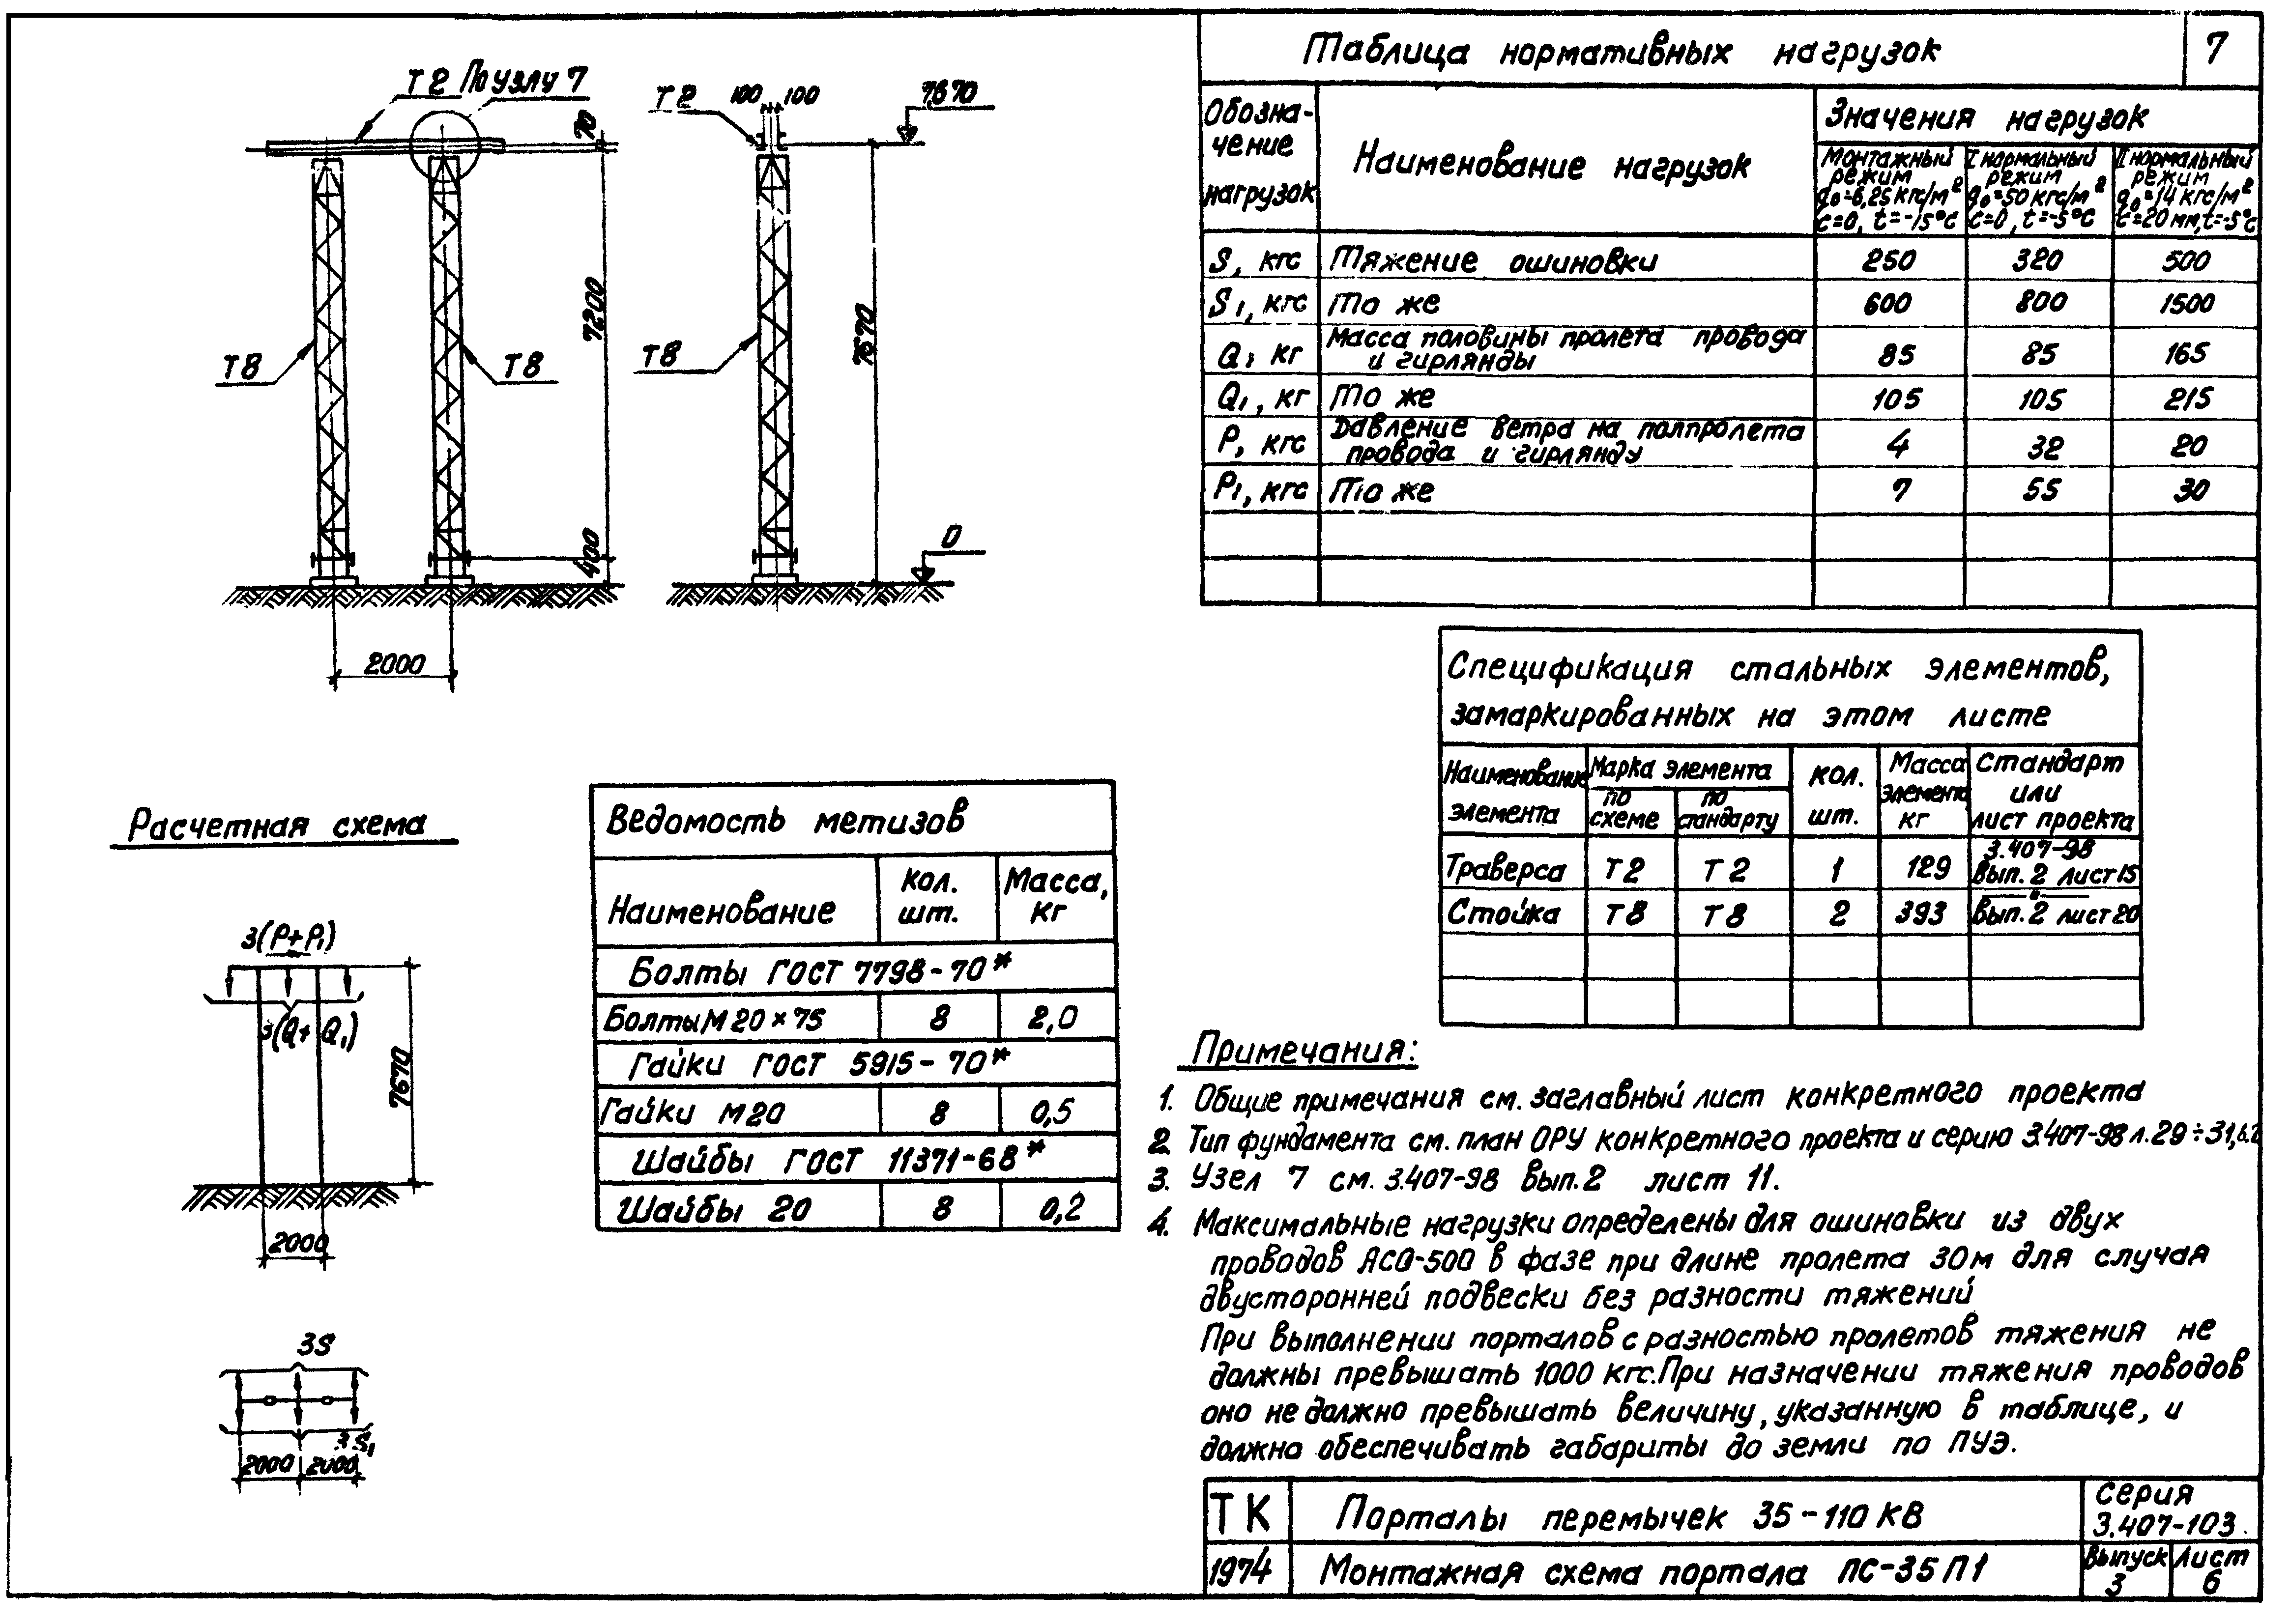 Таблица нормативных нагрузок
7
Обозна-
чение
нагрузок
Наименование нагрузок
Значения нагрузок
Монтажный
режим
q₀=6,25 кгс/м²
c=0, t=-15°c
I нормальный
режим
q₀=50 кгс/м²
c=0, t=-5°c
II нормальный
режим
q₀=14 кгс/м²
c=20 мм, t=-5°c
S, кгс Тяжение ошиновки 250 320 500
S₁, кгс То же 600 800 1500
Q, кг Масса половины пролета провода
и гирлянды 85 85 165
Q₁, кг То же 105 105 215
P, кгс Давление ветра на полпролета
провода и гирлянду 4 32 20
P₁, кгс То же 7 55 30
Т2 По узлу 7
70
7200
400
Т8
Т8
2000
Т2
100 100
7,670
Т8
7670
0
Спецификация стальных элементов,
замаркированных на этом листе
Наименование
элемента
Марка элемента
по
схеме
по
стандарту
кол.
шт.
Масса
элемента
кг
Стандарт
или
лист проекта
Траверса Т2 Т2 1 129 3.407-98
вып. 2 лист 15
Стойка Т8 Т8 2 393 —"—
вып. 2 лист 20
Расчетная схема
3(P+P₁)
3(Q+Q₁)
7670
2000
3S
3S₁
2000 2000
Ведомость метизов
Наименование
кол.
шт.
Масса,
кг
Болты ГОСТ 7798-70*
Болты М20×75 8 2,0
Гайки ГОСТ 5915-70*
Гайки М20 8 0,5
Шайбы ГОСТ 11371-68*
Шайбы 20 8 0,2
Примечания:
1. Общие примечания см. заглавный лист конкретного проекта
2. Тип фундамента см. план ОРУ конкретного проекта и серию 3.407-98 л. 29÷31, в.2
3. Узел 7 см. 3.407-98 вып. 2 лист 11.
4. Максимальные нагрузки определены для ошиновки из двух
проводов АСО-500 в фазе при длине пролета 30м для случая
двусторонней подвески без разности тяжений
При выполнении порталов с разностью пролетов тяжения не
должны превышать 1000 кгс. При назначении тяжения проводов
оно не должно превышать величину, указанную в таблице, и
должна обеспечивать габариты до земли по ПУЭ.
ТК
1974
Порталы перемычек 35-110 КВ
Монтажная схема портала ПС-35П1
серия
3.407-103.
Выпуск
3
Лист
6